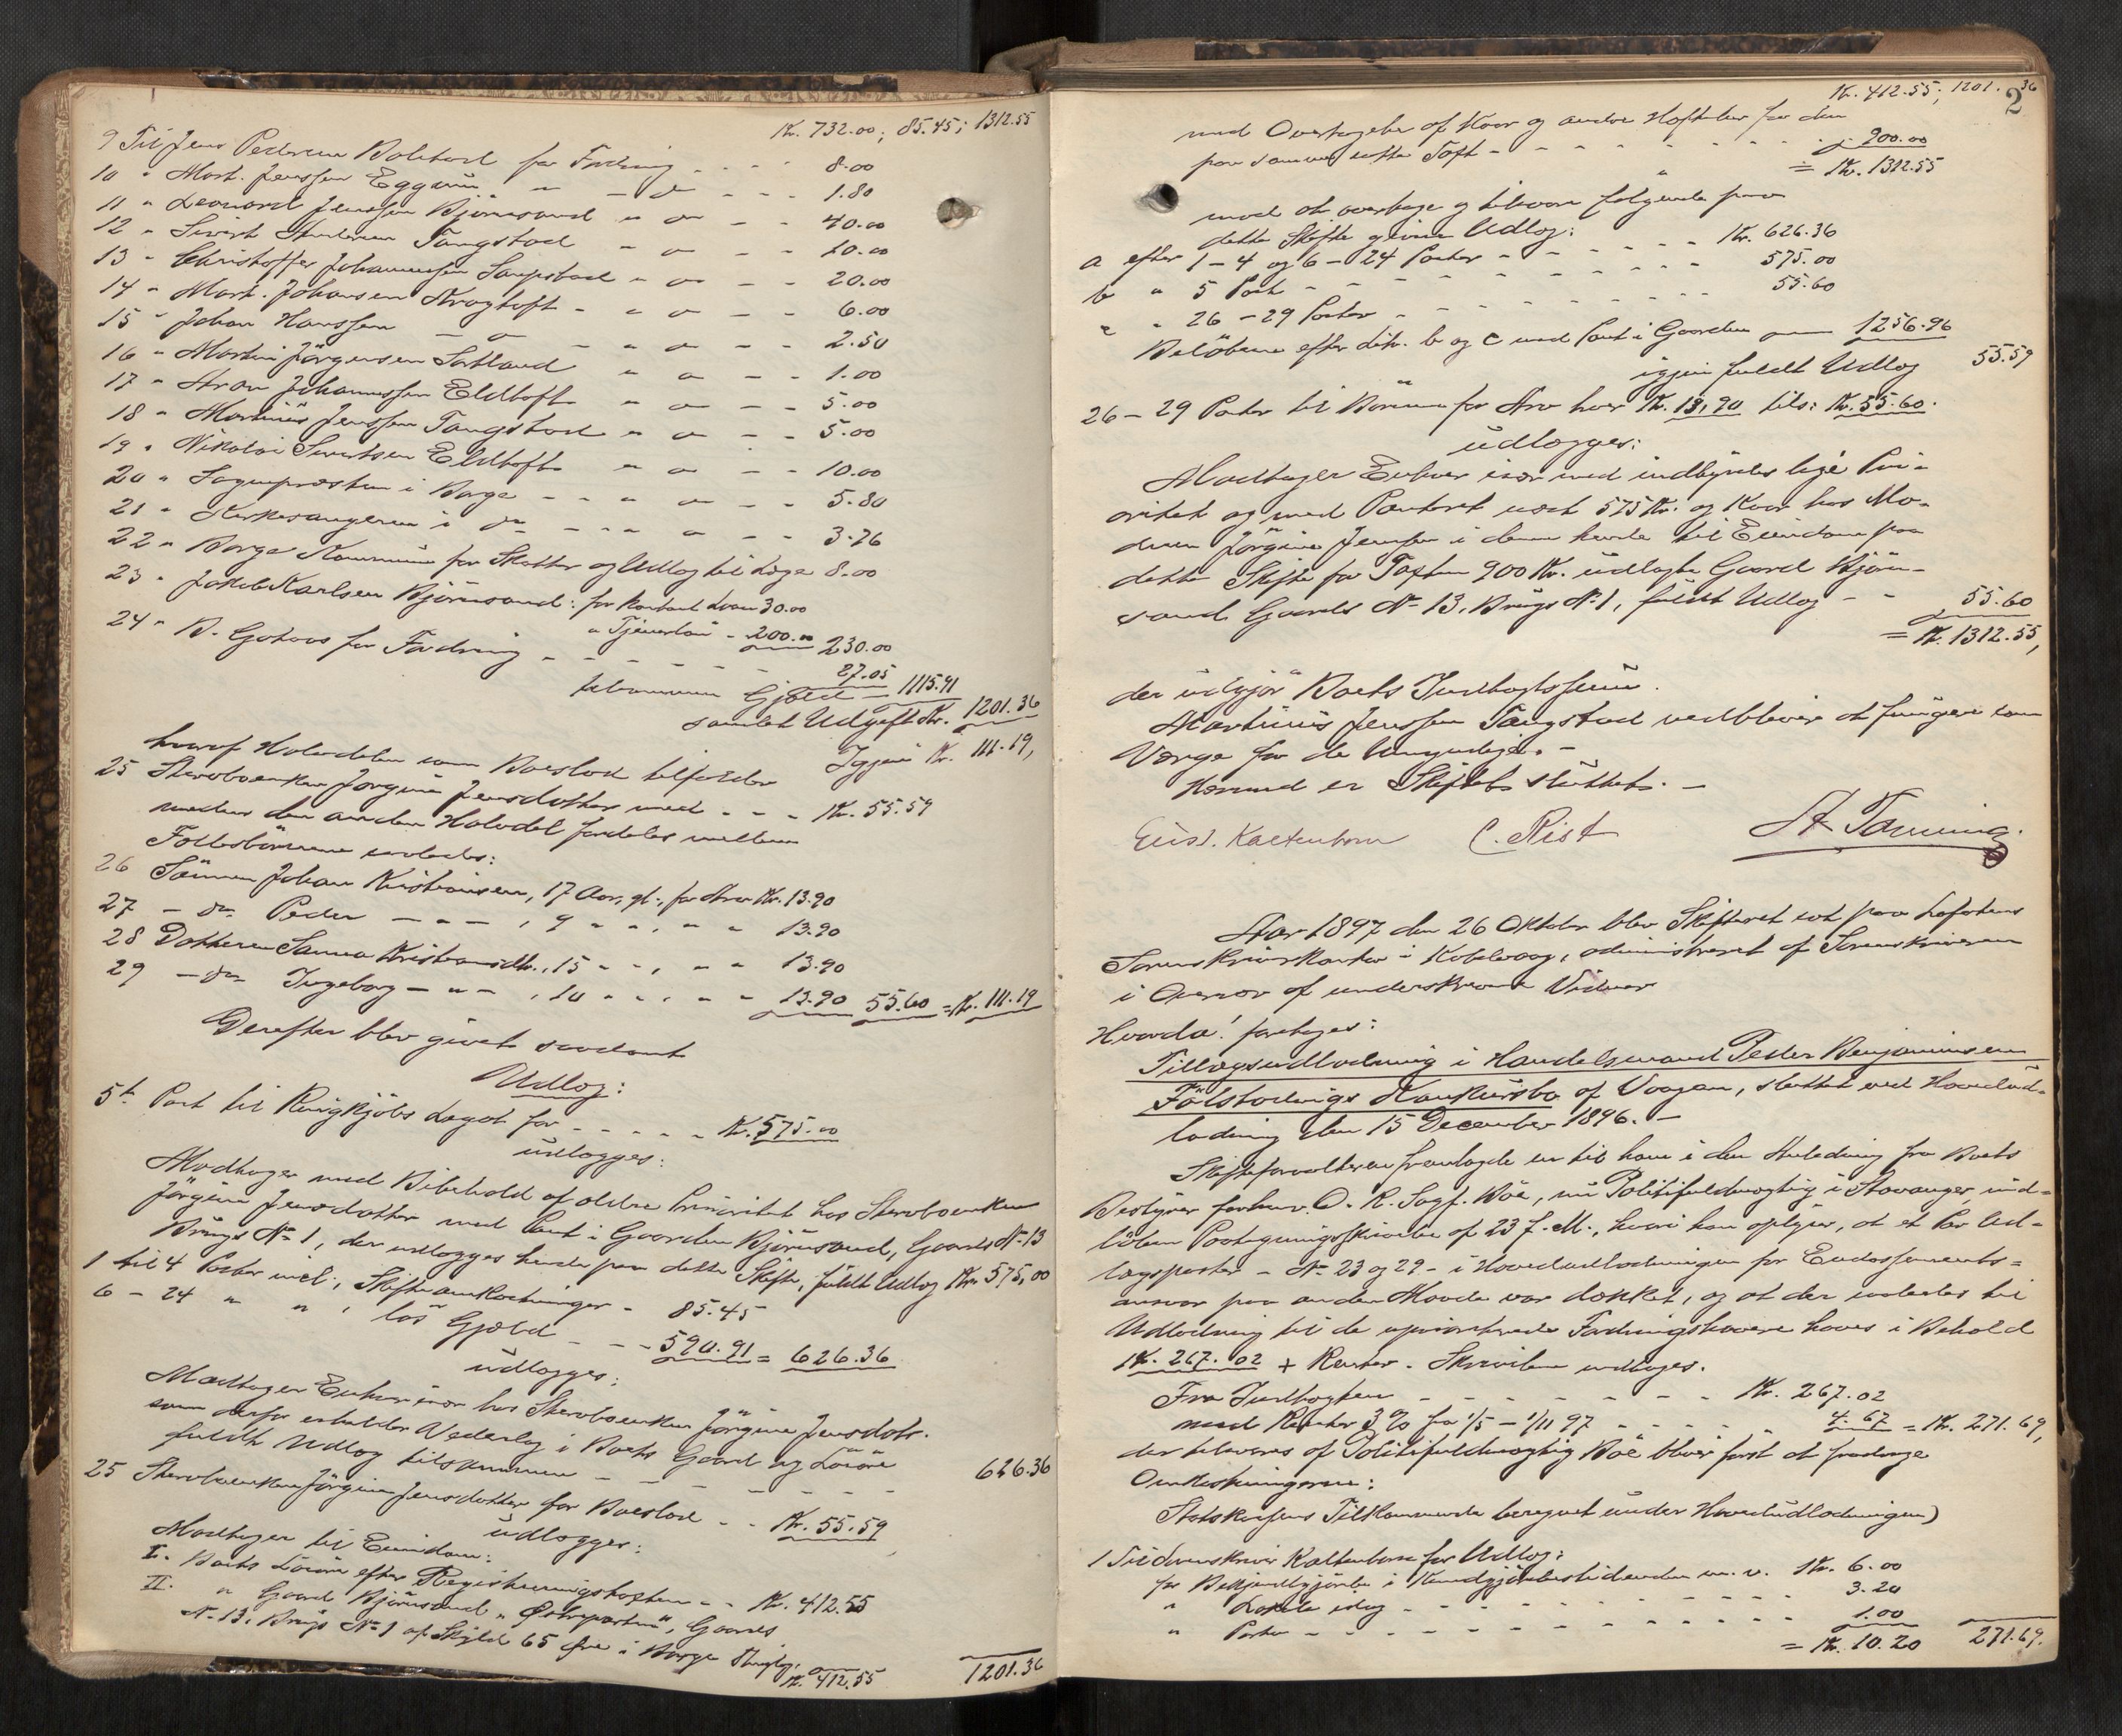 Kr. 732.00; 85.45; 1312.55
9 Til Jens Pedersen Bolstad for Fordring - - - 8.00
10 " Mart. Jenssen Eggum " - do - - - 1.80
11 " Leonard Jenssen Björnsand " do - - 40.00
12 " Sivert Tangstad " do - - 20.00
13 " Christoffer Johannessen Saupstad " do - - 20.00
14 " Mart. Johansen Kragtoft - " do - - 6.00
15 " Johan Hanssen - do - " do - - 2.50
16 " Martin Jörgensen Sortland " do - - 1.00
17 " Aron Johannessen Eldtoft " do - - 5.00
18 " Martinus Jenssen Tangstad " do - - 5.00
19 " Nikolai Sivertsen Eldtoft " do - - 10.00
20 " Sognepræsten i Borge - - " do - - 5.80
21 " Kirkesangeren i do - - " do - - 3.76
22 " Borge Kommune for Skatter og Udlæg til Læge 8.00
23 " Jakob Karlsen Björnsand: for kontant Laan 30.00
" Tjenerlön - 200.00 230.00
24 " B. Gotaas for Fordring - - - - - 27.05
tilsammen Gjæld - 1115.91
samlet Udgift Kr. 1201.36
Igjen Kr. 111.19,
hvoraf Halvdelen som Boeslod tilfalder
25 Stervboenken Jörgine Jensdotter med - - - Kr. 55.59
medens den anden Halvdel fordeles mellem
Fællesbörnene saaledes:
26 Sönnen Johan Kristiansen, 17 Aar gl., for Arv Kr. 13.90
27 - do Peder - " - , 9 " " , " " 13.90
28 Datteren Sanna Kristiansdtr., 15 " " , " " 13.90
29 - do Ingeborg - " - , 10 " " , " " 13.90 55.60 = Kr. 111.19
Derefter blev givet saadant
Udlæg:
5te Post til Ringkjöbs Legat for - - - - - Kr. 575.00
udlægges:
Modtager med Bibehold af ældre Prioritet hos Stervboenken
Jörgine Jensdotter med Pant i Gaarden Björnsand, Gaards No 13
Brugs No 1, der udlægges hende paa dette Skifte, fuldt Udlæg Kr. 575,00
1 til 4 Poster incl., Skifteomkostninger - 85.45
6 - 24 " " , lös Gjæld - - 540.91 = 626.36
udlægges:
Modtager Enhver især hos Stervboenken Jörgine Jensdotr.
som derfor erholder Vederlag i Boets Gaard og Lösöre
fuldt Udlæg tilsammen - - - - - - 626.36
25 Stervboenken Jörgine Jensdotter for Boeslod - - Kr. 55.59
udlægges:
Modtager til Eiendom:
I. Boets Lösöre efter Registreringstaxten - - Kr. 412.55
II. " Gaard Björnsand "Østreparten", Gaards
No 13. Brugs No 1 af Skyld 65 Øre i Borge Thinglag.
Kr. 412.55 1201.36
2
Kr. 412.55; 1201.36
med Overtagelse af Kaar og andre Heftelser for den
paa samme satte Taxt - - - - - - - 900.00
= Kr. 1312.55
mod at overtage og tilsvare følgende paa
dette Skifte givne Udlæg:
a efter 1 - 4 og 6 - 24 Poster - - - - - Kr. 626.36
b " 5 Post - - - - - - - - 575.00
c " 26 - 29 Poster - - - - - - - 55.60
Belöbene efter Litr. b og c med Pant i Gaarden 1256.96
igjen fuldt Udlæg 55.59
26 - 29 Poster til Börnene for Arv hver Kr. 13,90 tils: Kr. 55.60.
udlægges:
Modtager Enhver især med indbyrdes lige Pri-
oritet og med Panteret næst 575 Kr. og Kaar hos Mo-
deren Jörgine Jenssen i denne hende til Eiendom paa
dette Skifte for Taxten 900 Kr. udlagte Gaard Björn-
sand Gaards No 13, Brugs No 1, fuldt Udlæg - - 55.60
= Kr. 1312.55,
der udgjör Boets Indtægtssum.
Martinus Jenssen Tangstad vedbliver at fungere som
Værge for de Umyndige. -
Hermed er Skiftet sluttet. -
Eiosl. Kaltenborn C. Rist A. Tanning.
Aar 1897 den 26 Oktober blev Skifteret sat paa Lofotens
Sorenskriverkontor i Kabelvaag, administreret af Sorenskriveren
i Overvær af underskrevne Vidner
Hvorda! foretoges:
Tillægsudlodning i Handelsmand Peder Benjaminsen
Følstadvigs Konkursbo af Vaagan, sluttet ved Hovedud-
lodning den 15 December 1896. -
Skifteforvalteren fremlagde en til ham i den Anledning fra Boets
Bestyrer forhenv. O. R. Sagf. Böe, nu Politifuldmægtig i Stavanger, ind-
löben Paategningsskrivelse af 23 f. M., hvori han oplyser, at et Par Ud-
lægsposter - No 23 og 29 - i Hovedudlodningen for Endossements-
ansvar paa anden Maade var dækket, og at der saaledes til
Udlodning til de uprioriterede Fordringshavere haves i Behold
Kr. 267.02 + Renter. Skrivelsen vedlægges.
Fra Indtægten - - - - - - - Kr. 267.02
med Renter 3 % fra 1/5 - 1/11 97 - - - - 4.67 = Kr. 271.69,
der tilsvares af Politifuldmægtig Böe bliver først at fradrage
Omkostningerne:
Statskassens Tilkommende beregnet under Hovedudlodningen)
1 Til Sorenskriver Kaltenborn for Udlæg:
for Bekjendtgjörelse i Kundgjörelsestidenden m. v. Kr. 6.00
" Lokale idag - - - - - - - - 3.20
" Porto - - - - - - - - - - 1.00
= Kr. 10.20 271.69.